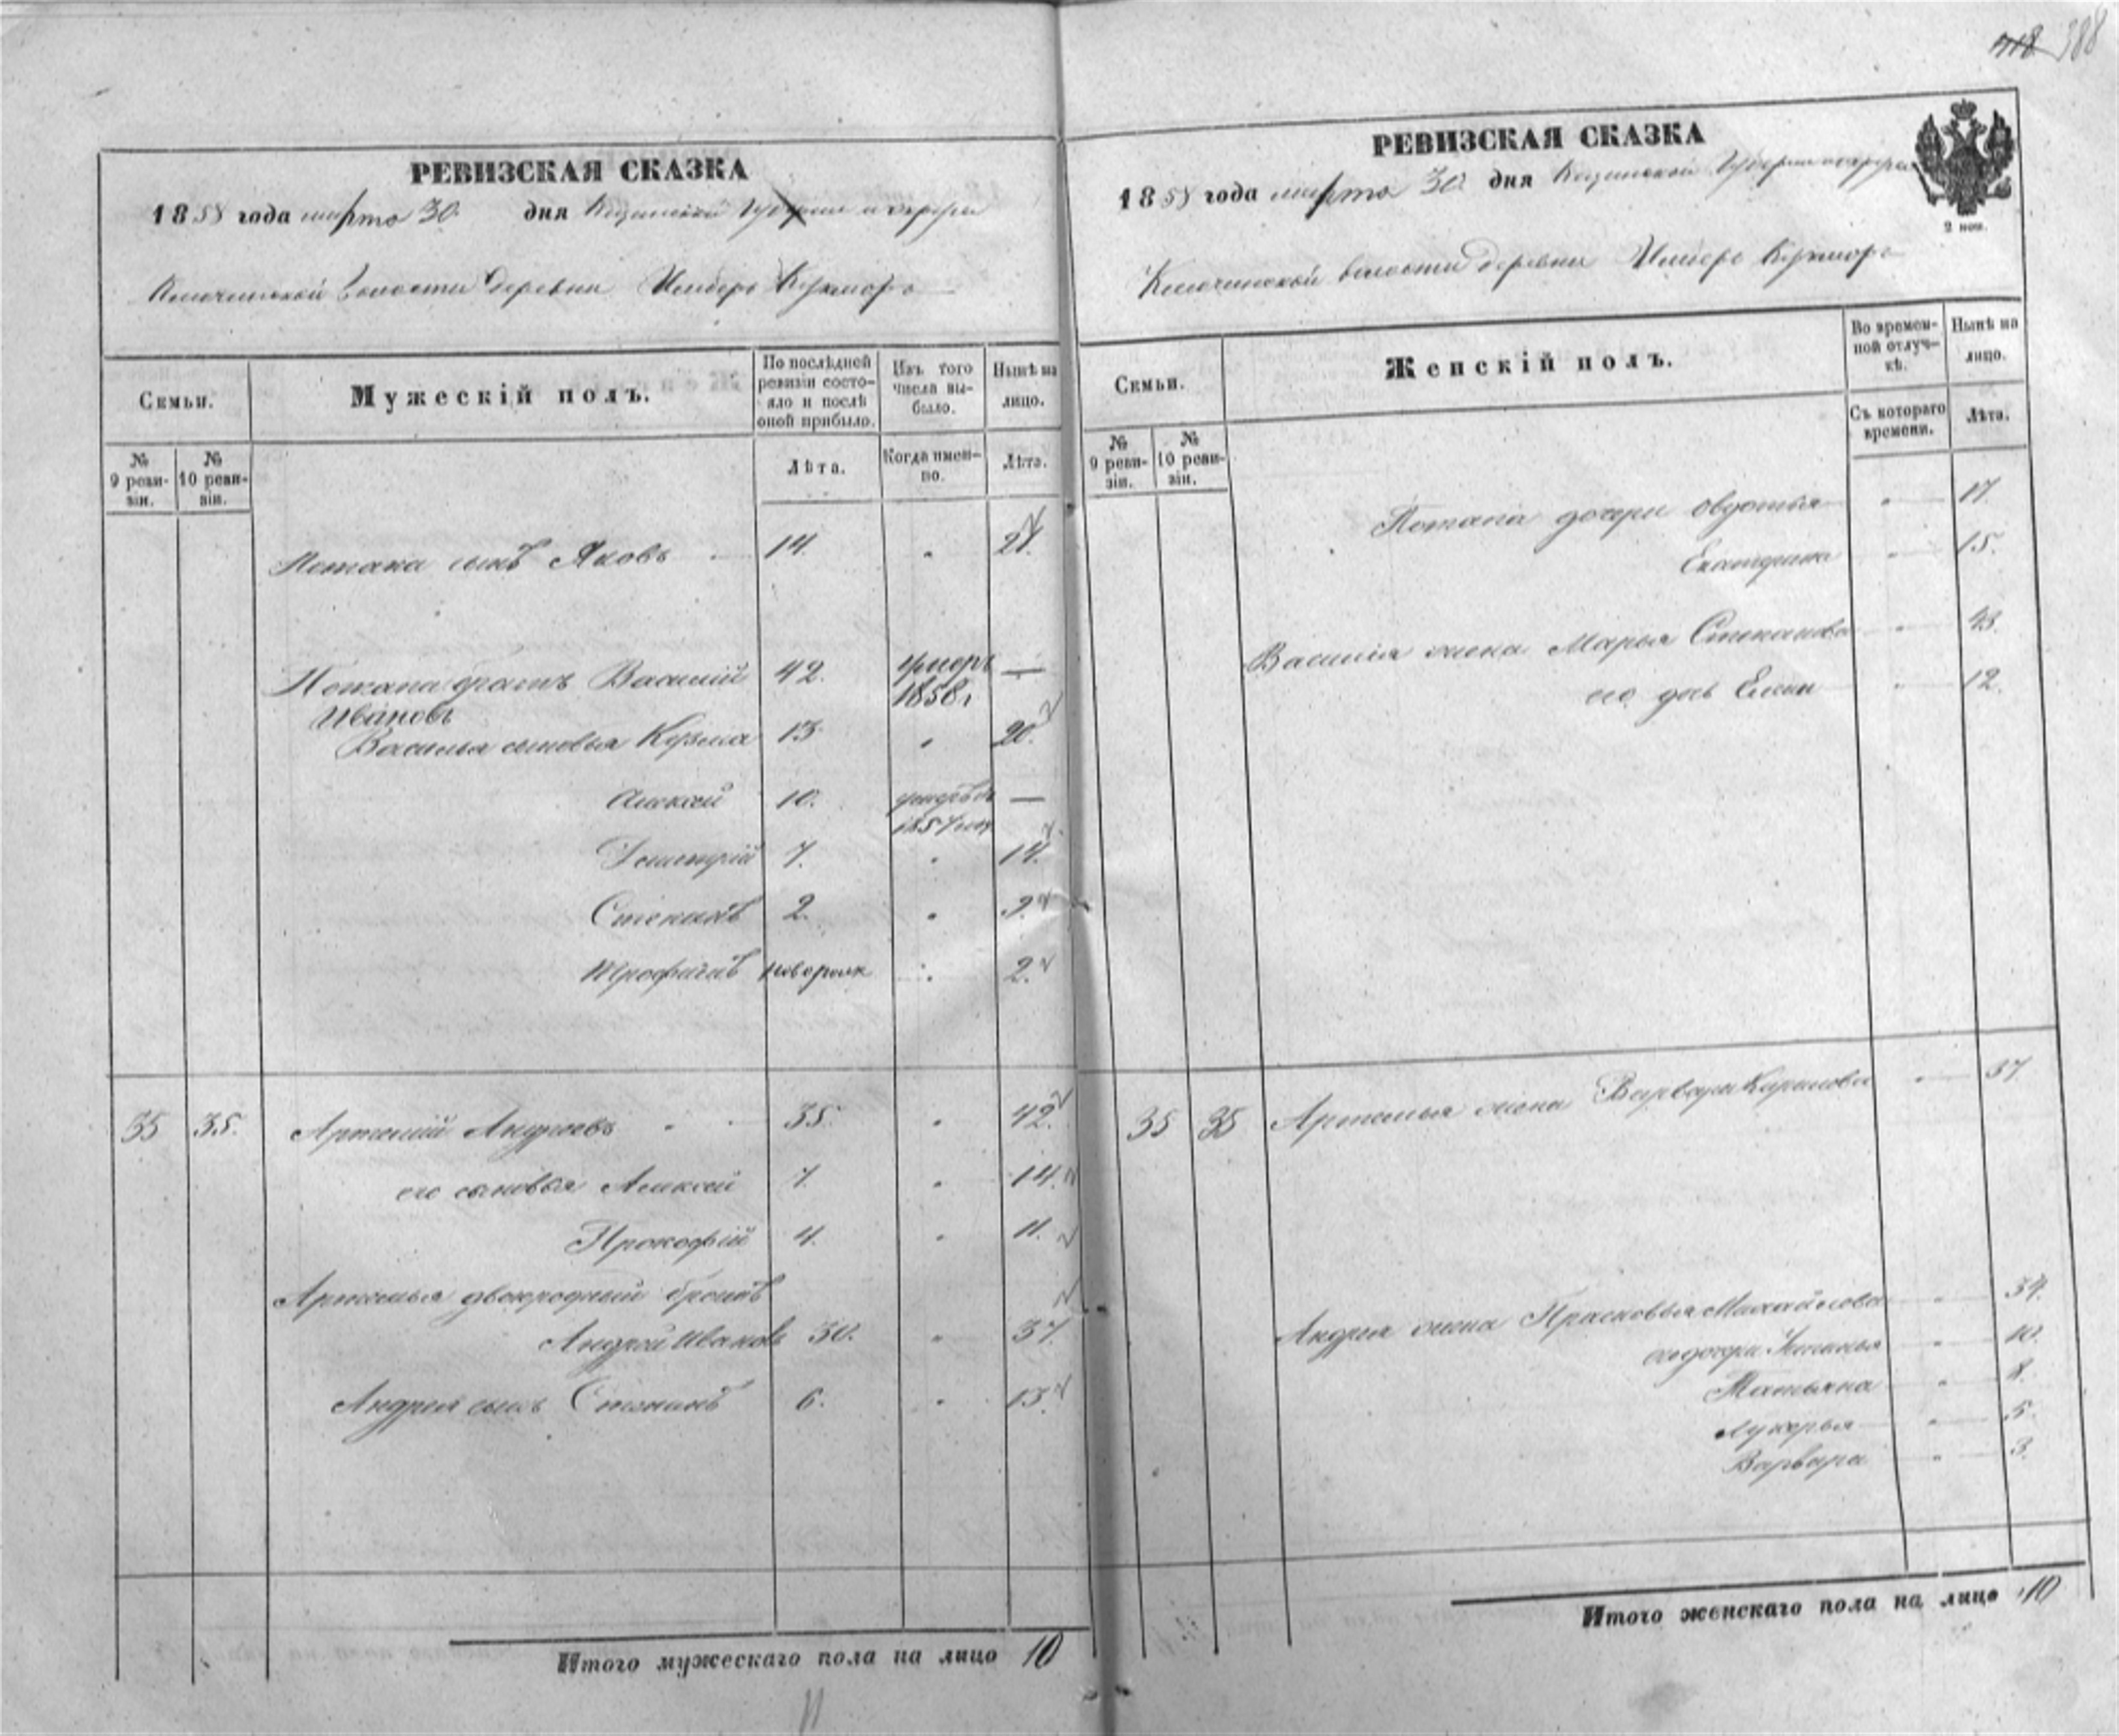 388
РЕВИЗСКАЯ СКАЗКА
1858 года марта 30 дня Казанской Губернии и округи
волости деревни Кукмора
Семьи.
Мужескій полъ.
По послѣдней ревизіи состояло и послѣ оной прибыло.
Изъ того числа выбыло.
Нынѣ на лицо.
№ 9 ревизіи.
№ 10 ревизіи.
Лѣта.
Когда именно.
Лѣта.
Потапа сынъ Яковъ 14. " 21.
Потапа братъ Василій 42. умеръ —
Ивановъ 1858г
Василья сыновья Козьма 13 " 20.
Алексей 10. умеръ въ —
1857 году
Дмитрій 7. " 14.
Степанъ 2. " 9.
Трофимъ новорож " 2.
35 35. Артемій Андреевъ 35. " 42.
его сыновья Алексей 7. " 14.
Прокофій 4. " 11.
Артемья двоюродный братъ
Андрей Ивановъ 30. " 37.
Андрея сынъ Степанъ 6. " 13.
Итого мужескаго пола на лицо 10
11
РЕВИЗСКАЯ СКАЗКА
1858 года марта 30 дня Казанской Губернии и округи
2 коп.
волости деревни Кукмора
Семьи.
Женскій полъ.
Во временной отлучкѣ.
Нынѣ на лицо.
№ 9 ревизіи.
№ 10 ревизіи.
Съ котораго времени.
Лѣта.
Потапа дочери Овдотья " 17.
Екатерина " 15.
Василія жена Марья Степанова " 43.
его дочь " 12.
35 35 Артемья жена Варвара Кирилова " 37
Андрея жена Прасковья Михайлова " 34.
его дочери Устинья " 10.
Татьяна " 8.
Лукерья " 5.
Варвара " 3.
Итого женскаго пола на лицо 10